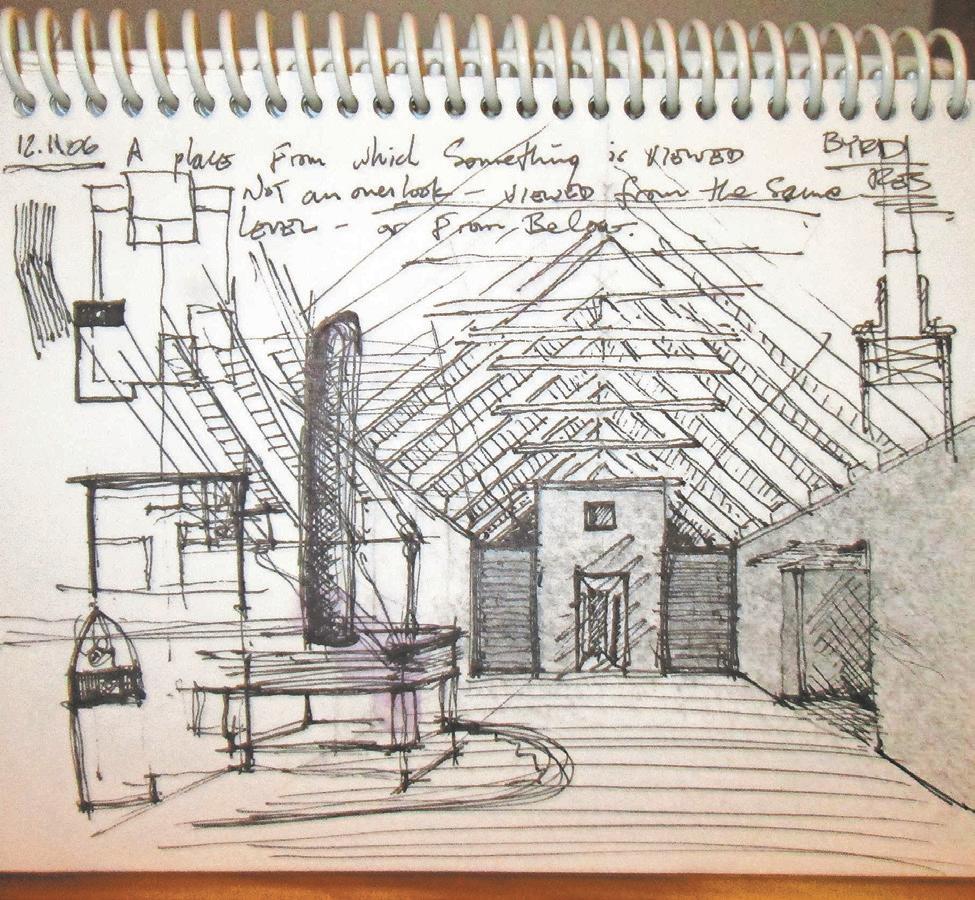 12.11.06 A place From which Something is VIEWED BYRD
NOT an overlook – VIEWED from the Same RES
LEVEL – or From Below.